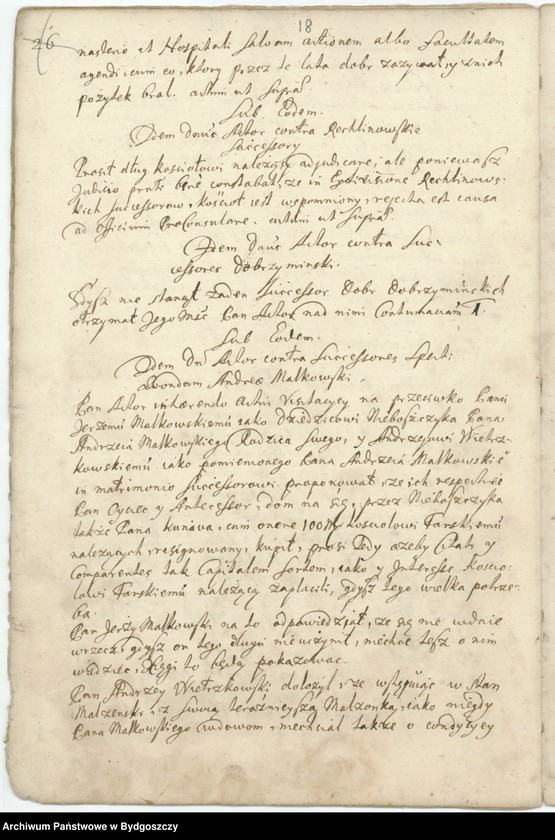 18
26
nasterio et Hospitali salvam actionem albo facultatem
agendi, cum eo, ktory przez te lata dobr zazywał, y z nich
pozytek brał. actum ut supra.
Sub Eodem.
Idem dnus Actor contra Rechlinowskie
Successory
Prosit dług kosciołowi nalezący adjudicare, ale poniewasz
Judicio prnti bene constabat, ze in Rechlinows-
kich Successorow, kościoł iest wspomniony, rejecta est causa
ad officium ProConsulare. actum ut supra.
Idem dnus Actor contra Suc-
cessores Dobrzyminski.
Gdysz nie stanął zaden Successor Dobr Dobrzyminskich
otrzymał Jego Msc Pan Actor nad nimi Contumaciam
Sub Eodem.
Idem dn Actor contra Successores Spect:
condam Andreæ Małkowski.
Pan Actor inhærendo actui na przeciwko Panu
Jerzemu Małkowskiemu iako dziedzicowi Nieboszczyka Pana
Andrzeia Małkowskiego Rodzica swego, y Andrzeiowi Wietrz-
kowskiemu iako pomienionego Pana Andrzeia Małkowskie
in matrimonio Successorowi proponował, ze ich respective
Pan Oyciec y Antecessor, dom na się, przez Nieboszczyka
także Pana Kunava, cum onere 100 kosciołowi Farskiemu
nalezących, resignowany, kupił, prosi tedy azeby Citati y
Comparentes tak Capitalem sortem, iako y Interesse Koscio-
łowi Farskiemu nalezącą zapłacili, gdysz tego wielka potrze-
ba.
Pan Jerzy Małkowski na to odpowiedział, ze się nie wdaie
w rzecz, gdysz on tego długu nieuczynił, niechce tesz o nim
wiedziec, Xięgi to będą pokazowac.
Pan Andrzey Wietrzkowski dołozył, ze wstępuiąc w stan
Małzenski, z swoią teraznieyszą Małzonką, iako niegdy
Pana Małkowskiego wdowom, niechciał także o condycyey
Archiwum Państwowe w Bydgoszczy